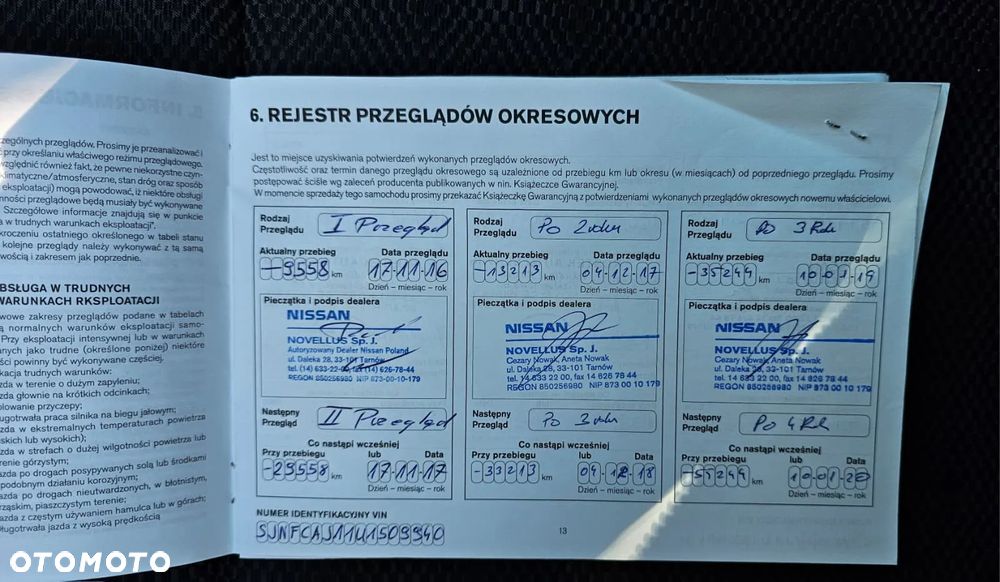 5. INFORMACJE
zególnych przeglądów. Prosimy je przeanalizować i
przy określaniu właściwego reżimu przeglądowego.
względnić również fakt, że pewne niekorzystne czyn-
klimatyczne/atmosferyczne, stan dróg oraz sposób
eksploatacji) mogą powodować, iż niektóre obsługi
nności przeglądowe będą musiały być wykonywane
Szczegółowe informacje znajdują się w punkcie
a w trudnych warunkach eksploatacji".
kroczeniu ostatniego określonego w tabeli stanu
kolejne przeglądy należy wykonywać z tą samą
wością i zakresem jak poprzednie.
BSŁUGA W TRUDNYCH
WARUNKACH RKSPLOATACJI
wowe zakresy przeglądów podane w tabelach
ą normalnych warunków eksploatacji samo-
Przy eksploatacji intensywnej lub w warunkach
anych jako trudne (określone poniżej) niektóre
ści powinny być wykonywane częściej.
kacja trudnych warunków:
zda w terenie o dużym zapyleniu;
zda głownie na krótkich odcinkach;
olowanie przyczepy;
ugotrwała praca silnika na biegu jałowym;
zda w ekstremalnych temperaturach powietrza
skich lub wysokich);
zda w strefach o dużej wilgotności powietrza lub
renie górzystym;
azda po drogach posypywanych solą lub środkami
podobnym działaniu korozyjnym;
azda po drogach nieutwardzonych, w błotnistym,
rząskim, piaszczystym terenie;
azda z częstym używaniem hamulca lub w górach;
ługotrwała jazda z wysoką prędkością
6. REJESTR PRZEGLĄDÓW OKRESOWYCH
Jest to miejsce uzyskiwania potwierdzeń wykonanych przeglądów okresowych.
Częstotliwość oraz termin danego przeglądu okresowego są uzależnione od przebiegu km lub okresu (w miesiącach) od poprzedniego przeglądu. Prosimy
postępować ściśle wg zaleceń producenta publikowanych w nin. Książeczce Gwarancyjnej.
W momencie sprzedaży tego samochodu prosimy przekazać Książeczkę Gwarancyjną z potwierdzeniami wykonanych przeglądów okresowych nowemu właścicielowi.
Rodzaj
Przeglądu I Przegląd
Aktualny przebieg Data przeglądu
-9558 km 17-11-16
Dzień – miesiąc – rok
Pieczątka i podpis dealera
NISSAN
NOVELLUS Sp. J.
Autoryzowany Dealer Nissan Poland
ul. Daleka 28, 33-101 Tarnów
tel. (14) 633-22-00, fax (14) 626-78-44
REGON 850256980 NIP 873-00-10-179
Następny
Przegląd II Przegląd
Co nastąpi wcześniej
Przy przebiegu lub Data
-29558 km 17-11-17
Dzień – miesiąc – rok
Rodzaj
Przeglądu Po 2 roku
Aktualny przebieg Data przeglądu
-13213 km 04-12-17
Dzień – miesiąc – rok
Pieczątka i podpis dealera
NISSAN
NOVELLUS Sp. J.
Cezary Nowak, Aneta Nowak
ul. Daleka 28, 33-101 Tarnów
tel. 14 633 22 00, fax 14 626 78 44
REGON 850256980 NIP 873 00 10 179
Następny
Przegląd Po 3 roku
Co nastąpi wcześniej
Przy przebiegu lub Data
-33213 km 04-12-18
Dzień – miesiąc – rok
Rodzaj
Przeglądu Po 3 Rok
Aktualny przebieg Data przeglądu
-35244 km 10-01-19
Dzień – miesiąc – rok
Pieczątka i podpis dealera
NISSAN
NOVELLUS Sp. J.
Cezary Nowak, Aneta Nowak
ul. Daleka 28, 33-101 Tarnów
tel. 14 633 22 00, fax 14 626 78 44
REGON 850256980 NIP 873 00 10 179
Następny
Przegląd Po 4 Rok
Co nastąpi wcześniej
Przy przebiegu lub Data
-55244 km 10-01-20
Dzień – miesiąc – rok
NUMER IDENTYFIKACYJNY VIN
SJNFCAJ11U1509940
13
OTOMOTO